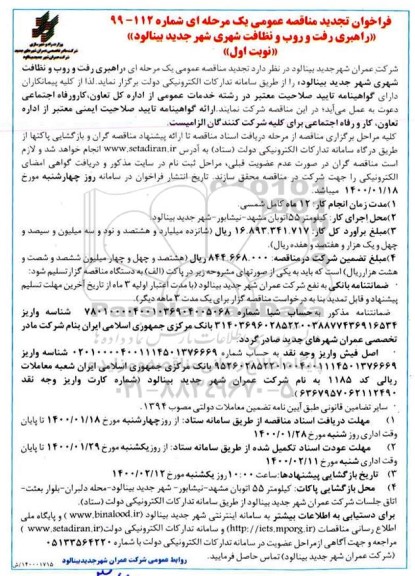 فراخوان تجدید مناقصه عمومی یک مرحله ای شماره ۱۱۲- ۹۹
«راهبری رفت و روب و نظافت شهری شهر جدید بینالود»
«نوبت اول»
شرکت عمران شهرجدید بینالود در نظر دارد تجدید مناقصه عمومی یک مرحله ای «راهبری رفت و روب و نظافت
شهری شهر جدید بینالود» را از طریق سامانه تدارکات الکترونیکی دولت برگزار نماید. لذا از کلیه پیمانکاران
دارای گواهینامه تایید صلاحیت معتبر در رشته خدمات عمومی از اداره کل تعاون، کارورفاه اجتماعی
دعوت به عمل می‌آید؛ در این مناقصه شرکت نمایند. ارائه گواهینامه تایید صلاحیت ایمنی معتبر از اداره
تعاون، کار و رفاه اجتماعی برای کلیه شرکت کنندگان الزامیست.
کلیه مراحل برگزاری مناقصه از مرحله دریافت اسناد مناقصه تا ارائه پیشنهاد مناقصه گران و بازگشایی پاکتها از
طریق درگاه سامانه تدارکات الکترونیکی دولت (ستاد) به آدرس www.setadiran.ir انجام خواهد شد و لازم
است مناقصه گران در صورت عدم عضویت قبلی، مراحل ثبت نام در سایت مذکور و دریافت گواهی امضای
الکترونیکی را جهت شرکت در مناقصه محقق سازند. تاریخ انتشار فراخوان در سامانه روز چهارشنبه مورخ
۱۴۰۰/۰۱/۱۸ میباشد.
۱)مدت زمان انجام کار: ۱۲ ماه کامل شمسی.
۲)محل اجرای کار: کیلومتر ۵۵ اتوبان مشهد-نیشابور-شهر جدید بینالود.
۳)مبلغ برآورد کل کار: ۱۶.۸۹۳.۳۴۱.۷۱۷ ریال (شانزده میلیارد و هشتصد و نود و سه میلیون و سیصد و
چهل و یک هزار و هفتصد و هفده ریال).
۴)مبلغ تضمین شرکت درمناقصه: ۸۴۴.۶۶۸.۰۰۰ ریال (هشتصد و چهل و چهار میلیون ششصد و شصت و
هشت هزارریال) است که باید به یکی از صورتهای مشروحه زیر در پاکت (الف) به دستگاه مناقصه گزار تسلیم شود:
ضمانتنامه بانکی به نفع شرکت عمران شهر جدید بینالود (با مدت اعتبار اولیه ۳ ماه از تاریخ آخرین مهلت تسلیم
پیشنهاد و قابل تمدید بنا به درخواست مناقصه گزار برای یک مدت ۳ ماهه دیگر).
تخصصی عمران شهرهای جدید صادر گردد.
سایر تضامین قانونی طبق آیین نامه تضمین معاملات دولتی مصوب ۱۳۹۴.
۱) مهلت دریافت اسناد مناقصه از طریق سامانه ستاد: از روز چهارشنبه مورخ ۱۴۰۰/۰۱/۱۸ تا پایان
وقت اداری روز شنبه مورخ ۱۴۰۰/۰۱/۲۸
۲) مهلت عودت اسناد تکمیل شده از طریق سامانه ستاد: از روز یکشنبه مورخ ۱۴۰۰/۰۱/۲۹ تا پایان
وقت اداری شنبه مورخ ۱۴۰۰/۰۲/۱۱
۳) تاریخ بازگشایی پیشنهادها: ساعت ۱۰:۰۰ روز یکشنبه مورخ ۱۴۰۰/۰۲/۱۲
۴) محل بازگشایی پاکات: کیلومتر ۵۵ اتوبان مشهد-نیشابور- شهر جدید بینالود-محله دلبران-بلوار بعثت-
اتاق جلسات شرکت عمران شهر جدید بینالود از طریق سامانه تدارکات الکترونیکی دولت (ستاد).
برای دستیابی به اطلاعات بیشتر به سایت اینترنتی شهر جدید بینالود ( www.binalood.ir ) و پایگاه ملی
اطلاع رسانی مناقصات (http://iets.mporg.ir) و سامانه تدارکات الکترونیکی دولت (www.setadiran.ir)
مراجعه و جهت آگاهی ازمراحل عضویت در سامانه تدارکات الکترونیکی دولت با شماره ۰۵۱۳۳۵۶۴۲۲۰
(شرکت عمران شهر جدید بینالود) تماس حاصل فرمایید.
روابط عمومی شرکت عمران شهر جدید بینالود